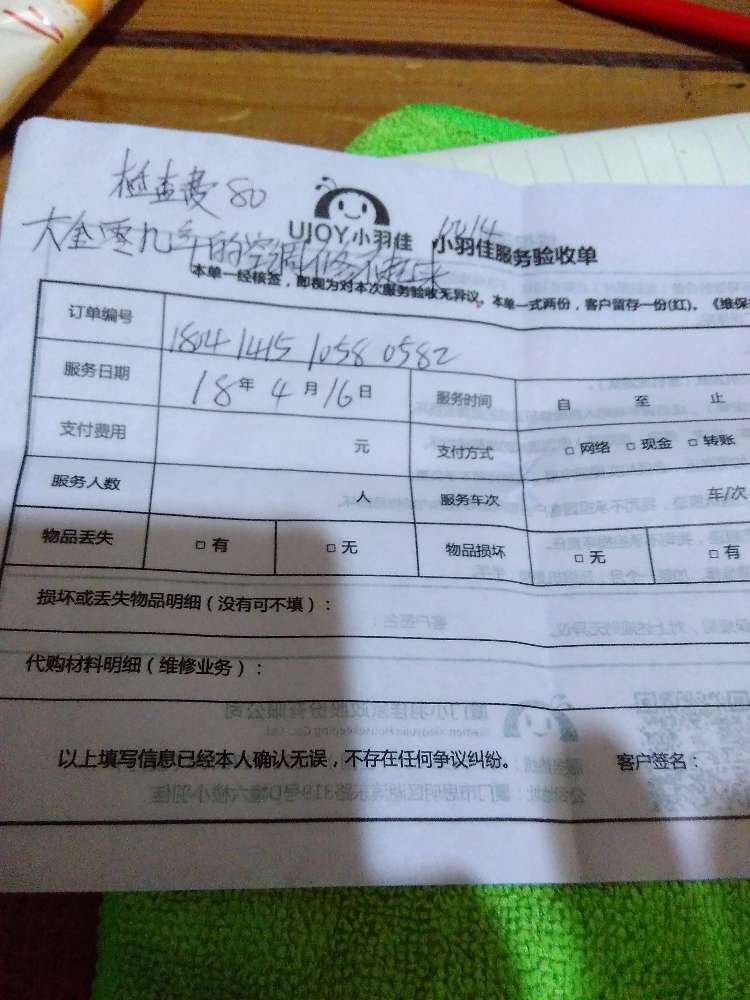 检查费 80
大金零九年的空调修不起来
UJOY小羽佳 小羽佳服务验收单
本单一经核签，即视为对本次服务验收无异议。本单一式两份，客户留存一份(红)。《维保
订单编号 1804 1415 1058 0582
服务日期 18年4月16日 服务时间 自 至 止
支付费用 元 支付方式 □ 网络 □ 现金 □ 转账
服务人数 人 服务车次 车/次
物品丢失 □ 有 □ 无 物品损坏 □ 无 □ 有
损坏或丢失物品明细（没有可不填）：
代购材料明细（维修业务）：
以上填写信息已经本人确认无误，不存在任何争议纠纷。 客户签名：